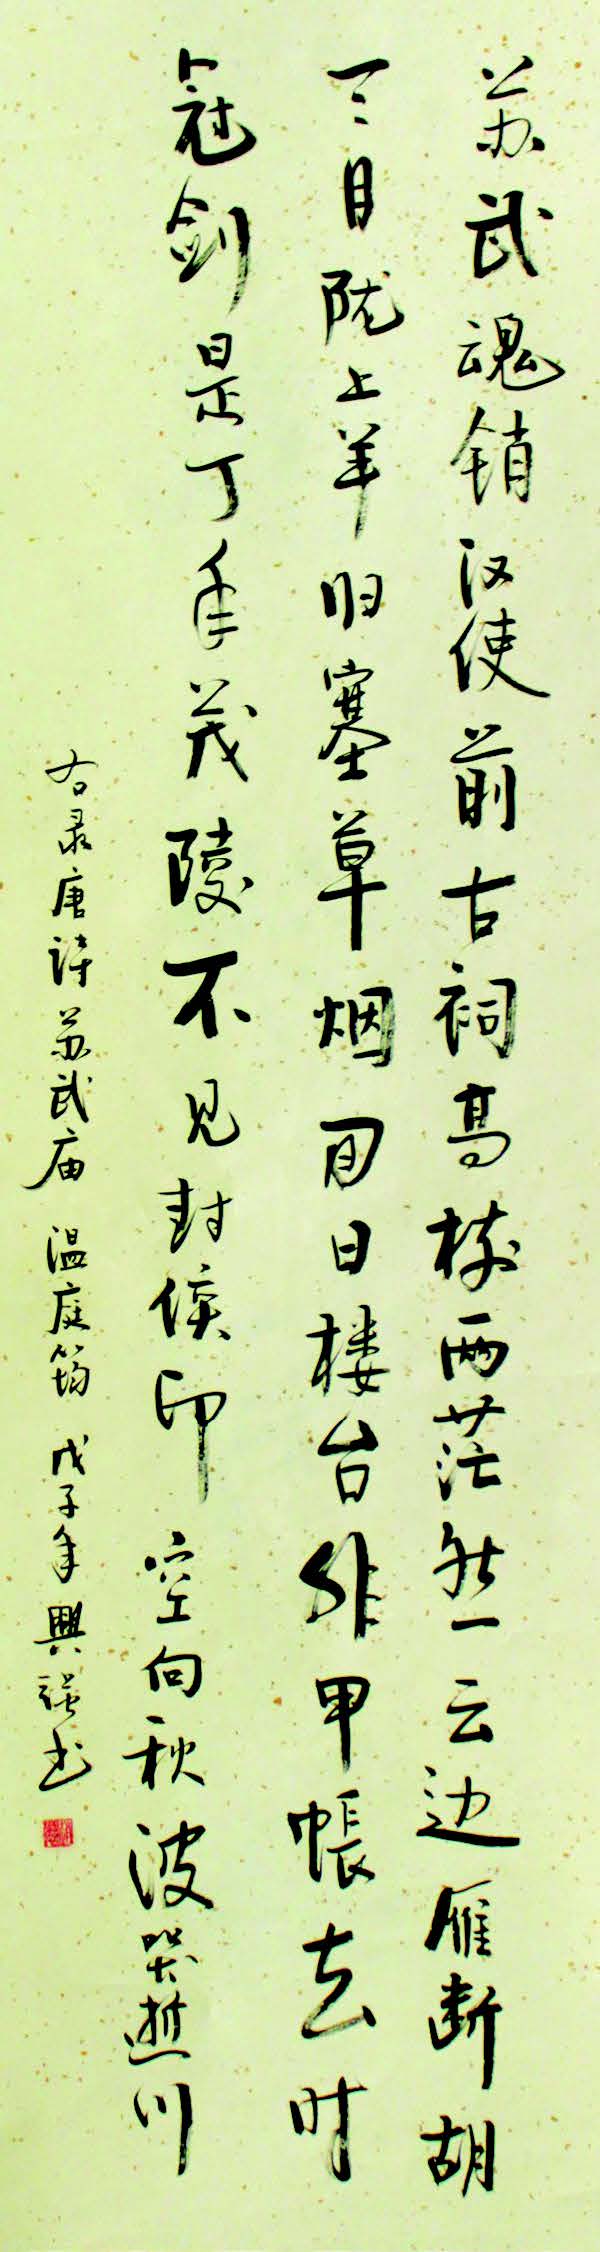 苏武魂销汉使前古祠高树两茫然云边雁断胡
天月陇上羊归塞草烟回日楼台非甲帳去时
冠剑是丁年茂陵不见封侯印空向秋波哭逝川
右录唐诗苏武庙 温庭筠 戊子年興强书